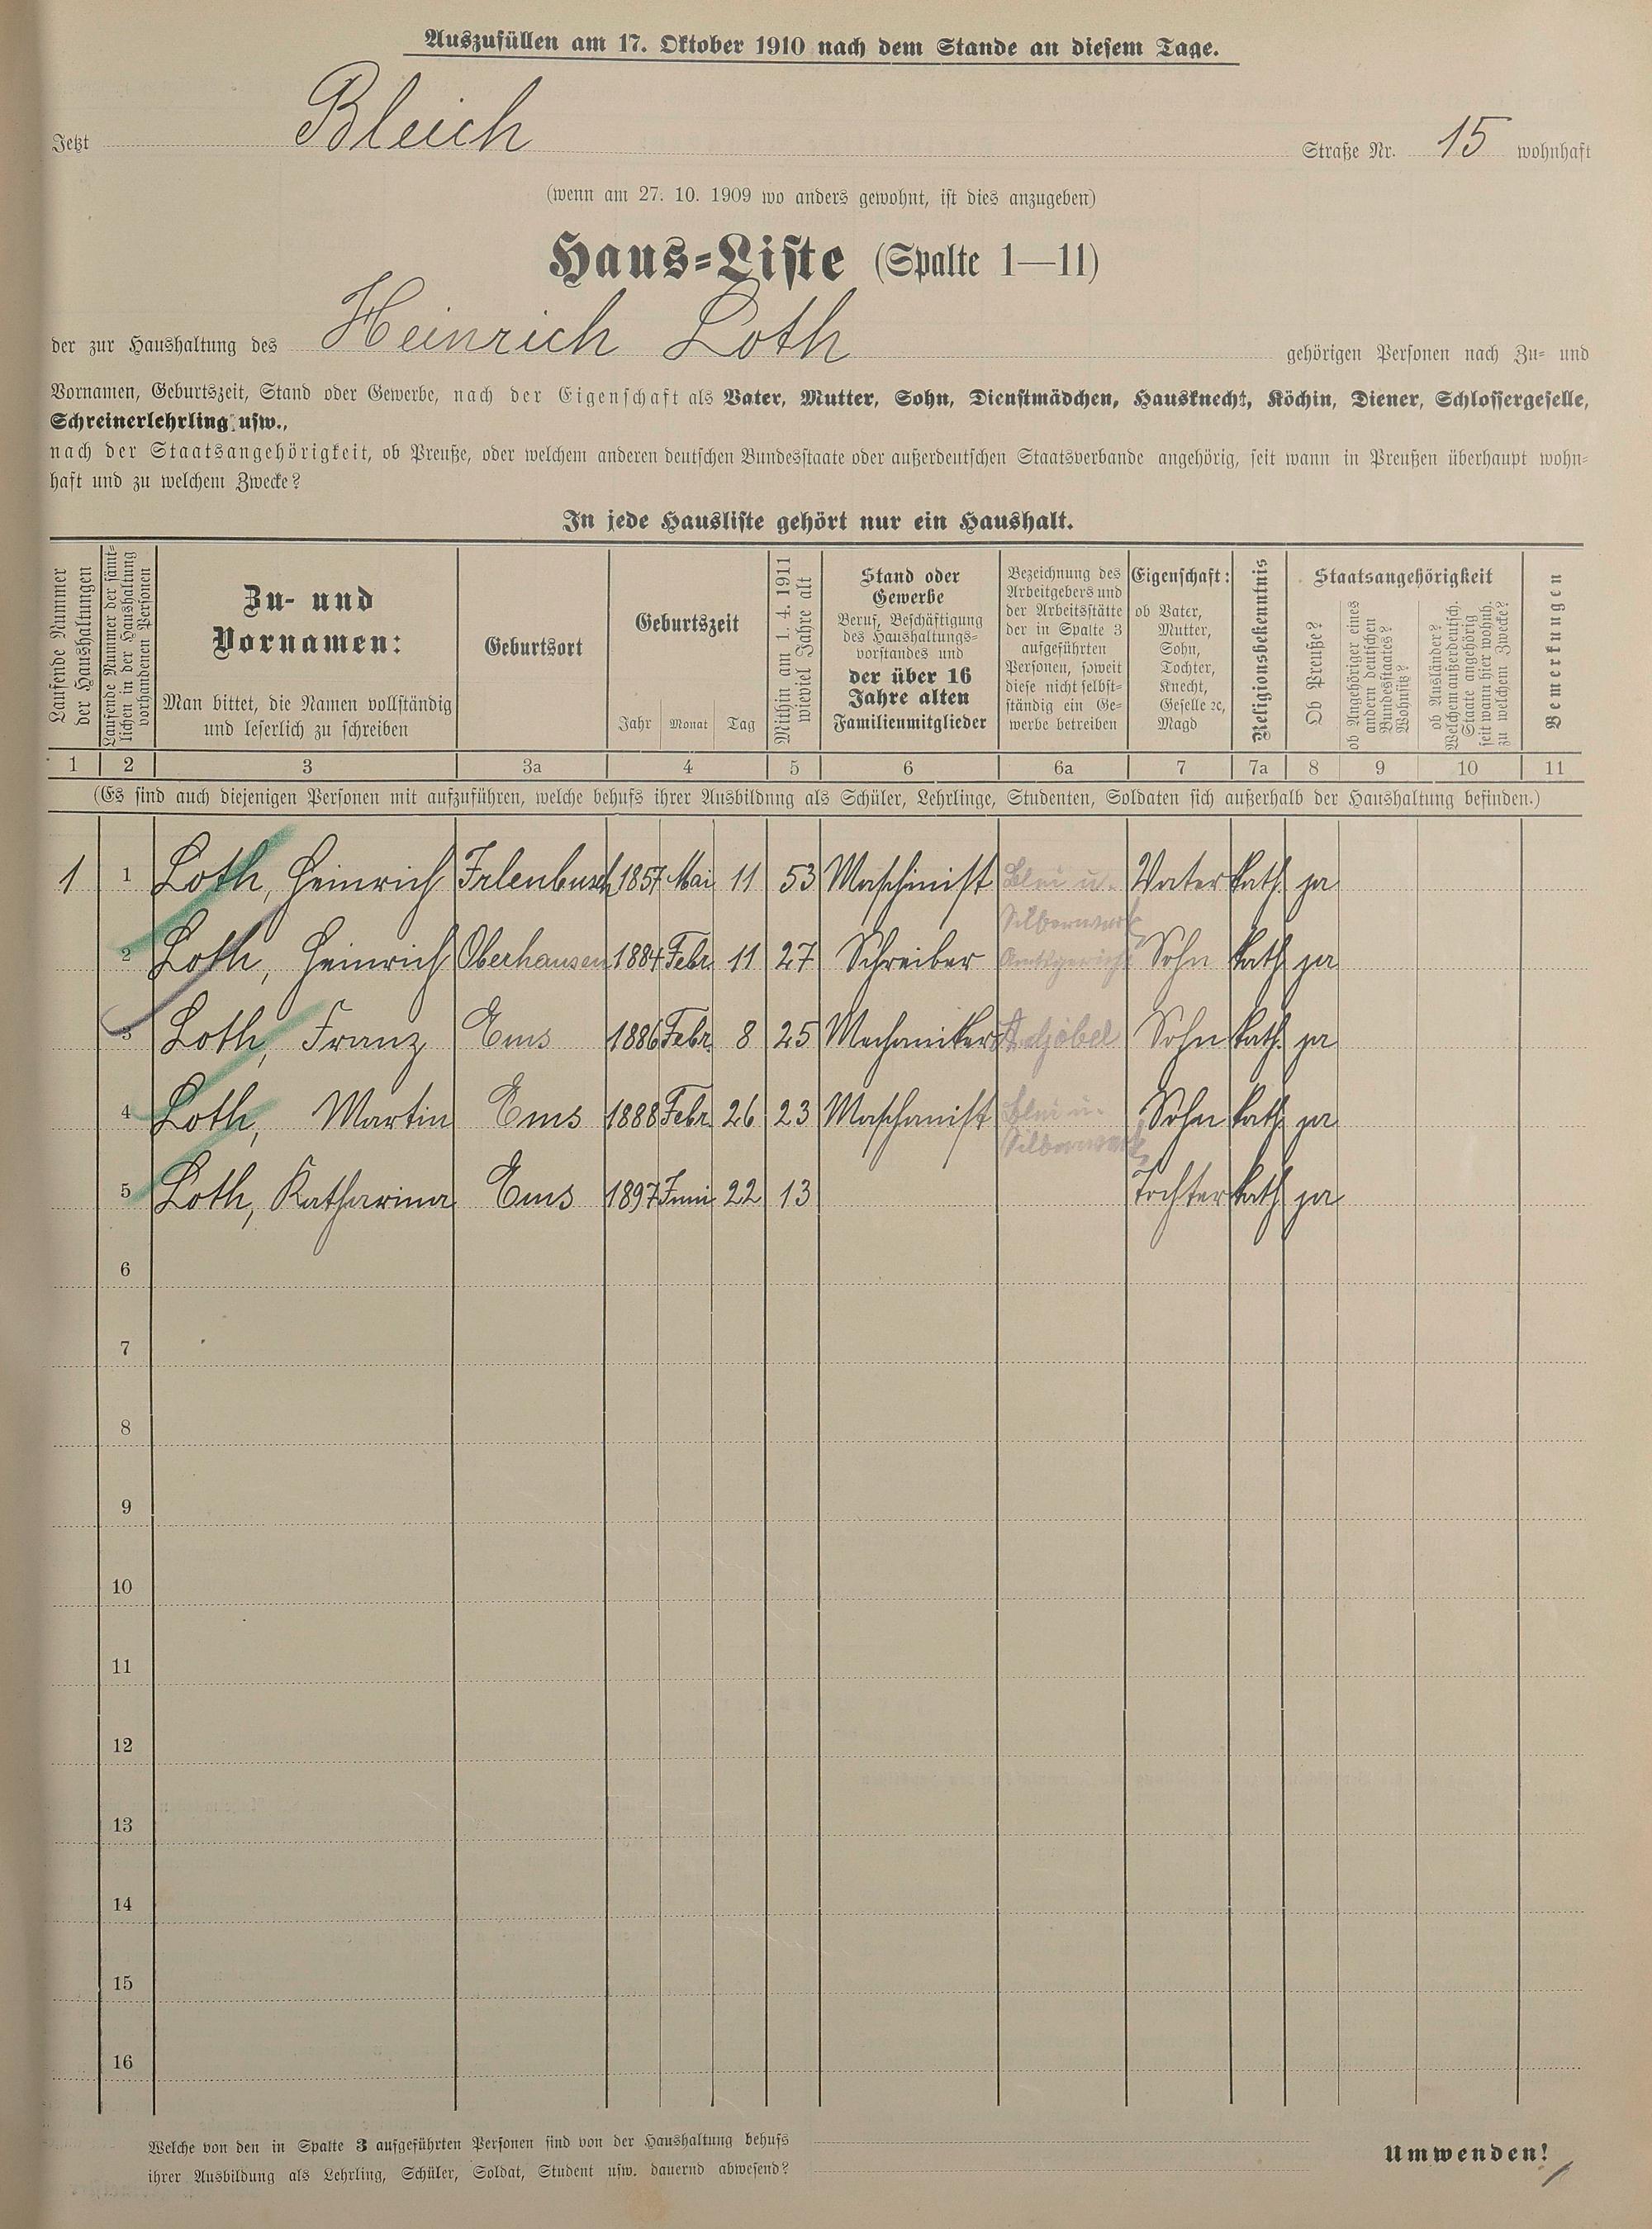 Auszufüllen am 17. Oktober 1910 nach dem Stande an diesem Tage.
Jetzt Bleich Straße Nr. 15 wohnhaft
(wenn am 27. 10. 1909 wo anders gewohnt, ist dies anzugeben)
Haus-Liste (Spalte 1—11)
der zur Haushaltung des Heinrich Loth gehörigen Personen nach Zu- und
Vornamen, Geburtszeit, Stand oder Gewerbe, nach der Eigenschaft als Vater, Mutter, Sohn, Dienstmädchen, Hausknecht, Köchin, Diener, Schlossergeselle,
Schreinerlehrling usw.,
nach der Staatsangehörigkeit, ob Preuße, oder welchem anderen deutschen Bundesstaate oder außerdeutschen Staatsverbande angehörig, seit wann in Preußen überhaupt wohn-
haft und zu welchem Zwecke?
In jede Hausliste gehört nur ein Haushalt.
Laufende Nummer
der Haushaltungen
Laufende Nummer der sämt-
lichen in der Haushaltung
vorhandenen Personen
Zu- und
Vornamen:
Man bittet, die Namen vollständig
und leserlich zu schreiben
Geburtsort
Geburtszeit
Jahr Monat Tag
Mithin am 1. 4. 1911
wieviel Jahre alt
Stand oder
Gewerbe
Beruf, Beschäftigung
des Haushaltungs-
vorstandes und
der über 16
Jahre alten
Familienmitglieder
Bezeichnung des
Arbeitgebers und
der Arbeitsstätte
der in Spalte 3
aufgeführten
Personen, soweit
diese nicht selbst-
ständig ein Ge-
werbe betreiben
Eigenschaft:
ob Vater,
Mutter,
Sohn,
Tochter,
Knecht,
Geselle ꝛc,
Magd
Religionsbekenntnis
Staatsangehörigkeit
Ob Preuße?
ob Angehöriger eines
andern deutschen
Bundesstaates?
Wohnsitz?
ob Ausländer?
Welchen außerdeutsch.
Staate angehörig
seit wann hier wohnh.
zu welchem Zwecke?
Bemerkungen
1 2 3 3a 4 5 6 6a 7 7a 8 9 10 11
(Es sind auch diejenigen Personen mit aufzuführen, welche behufs ihrer Ausbildung als Schüler, Lehrlinge, Studenten, Soldaten sich außerhalb der Haushaltung befinden.)
1 1 Loth, Heinrich Irlenbusch 1857 Mai 11 53 Maschinist Blei u. Vater kath. ja
Silberwerk
2 Loth, Heinrich Oberhausen 1884 Febr. 11 27 Schreiber Amtsgericht Sohn kath. ja
3 Loth, Franz Ems 1886 Febr. 8 25 Mechaniker Sohn kath. ja
4 Loth, Martin Ems 1888 Febr. 26 23 Maschanist Blei u. Sohn kath. ja
Silberwerk
5 Loth, Katharina Ems 1897 Juni 22 13 Tochter kath. ja
6
7
8
9
10
11
12
13
14
15
16
Welche von den in Spalte 3 aufgeführten Personen sind von der Haushaltung behufs
ihrer Ausbildung als Lehrling, Schüler, Soldat, Student usw. dauernd abwesend?
Umwenden!